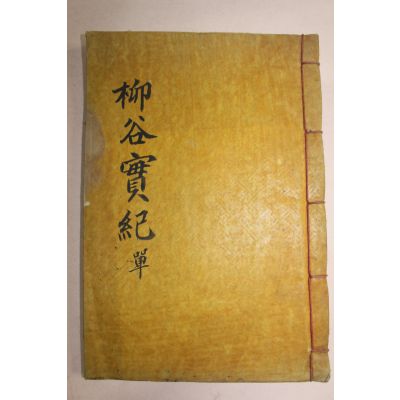 柳谷實紀 單